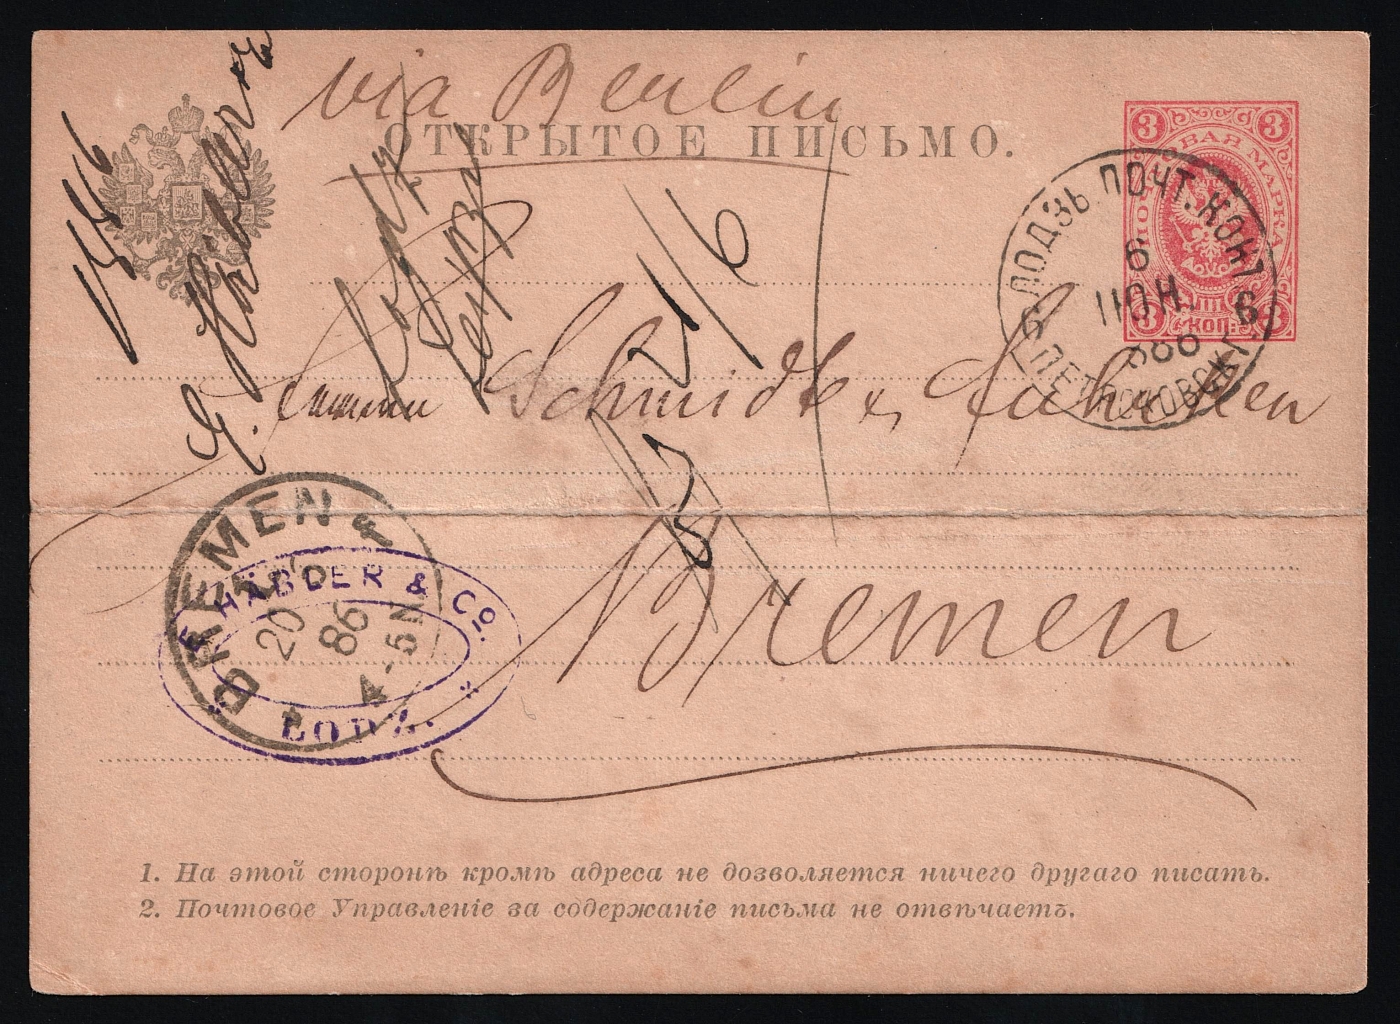 via Berlin
ОТКРЫТОЕ ПИСЬМО.
3 3
ПОЧТОВАЯ МАРКА
3 КОП. 3
ЛОДЗЬ ПОЧТ. КОНТ.
6
ІЮН.
1886
6 6
ПЕТРОКОВСК. Г.
1886
21/6
Schmidt &
Bremen
BREMEN
20
86
4-5N
HÄBLER & Co.
LODZ.
1. На этой сторонѣ кромѣ адреса не дозволяется ничего другаго писать.
2. Почтовое Управленіе за содержаніе письма не отвѣчаетъ.